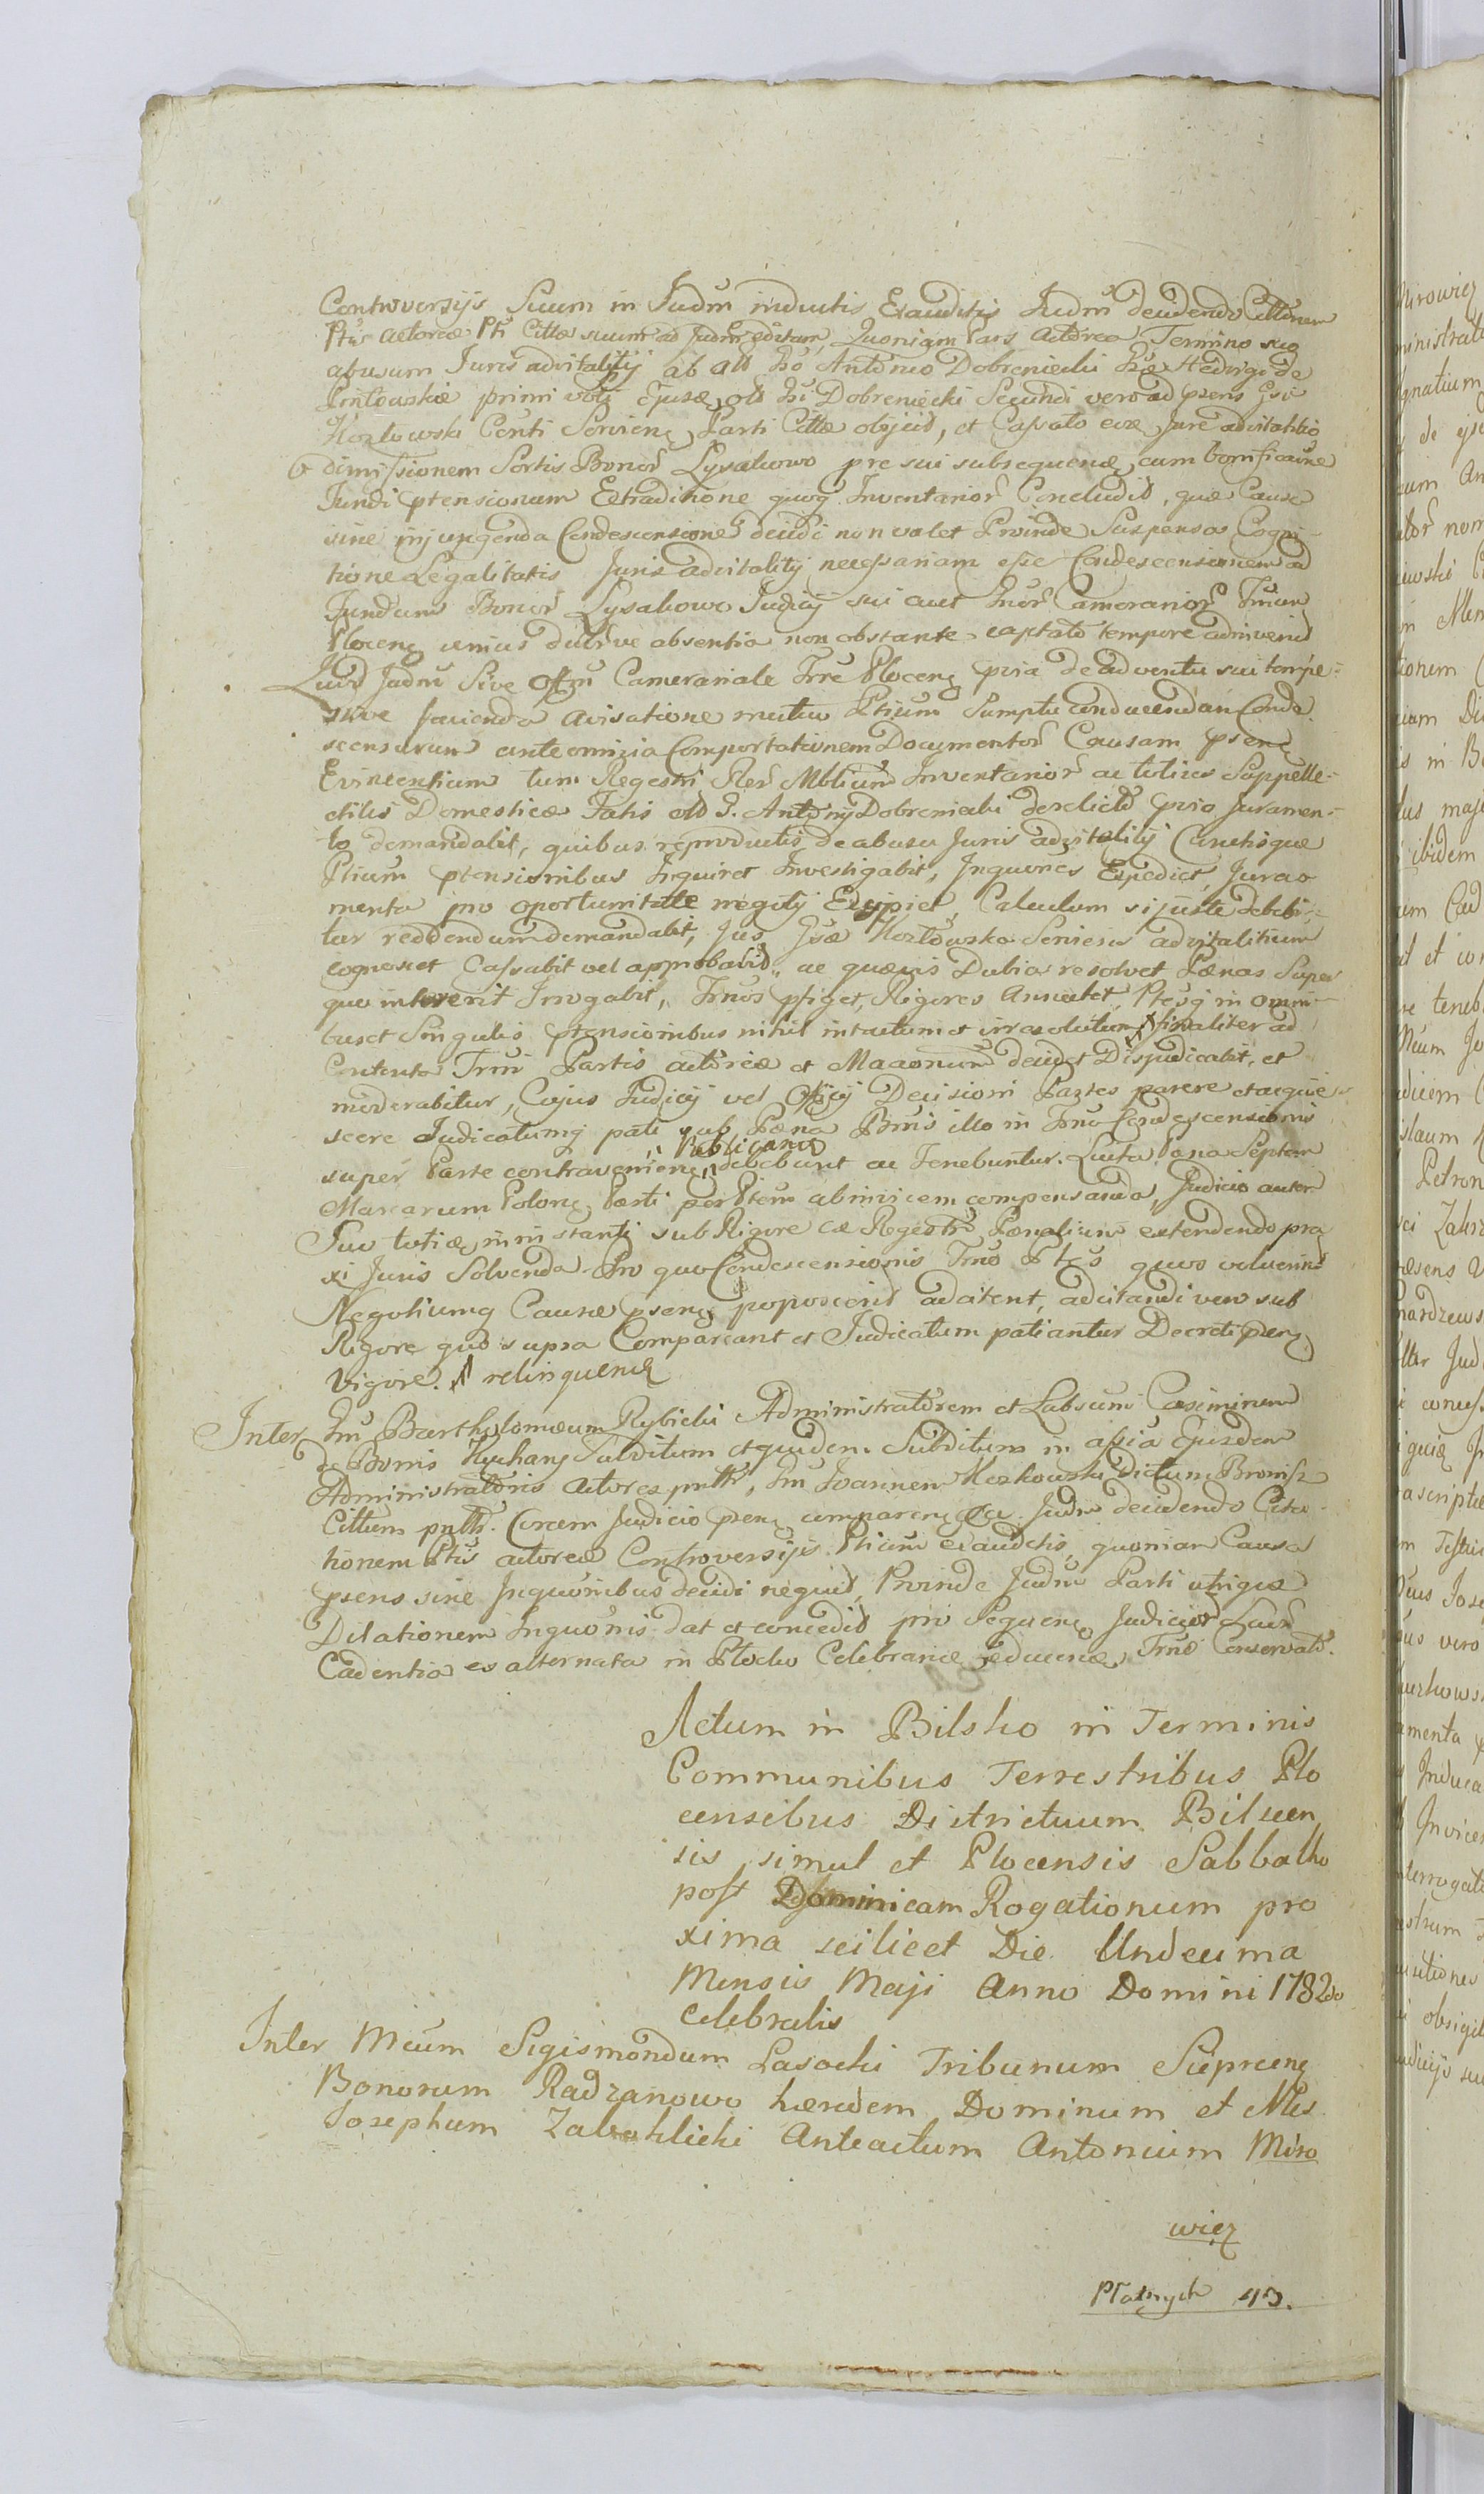 Controversijs Suum in Judm inductis Exauditis Judm decidendo Cittõnem
Ptis Actoreæ Pti Cittæ suum ad Judm editam, Quoniam Pars Actorea Termino suo
abusum Juris advitalitij ab olb Gso Antonio Dobreniecki Gsæ Hedvigi de
primi voti Ejusd olb Gsi Dobreniecki Secundi vero ad psens Gsi
Kozłowski Conti Servien Parti Cittæ objicit, et Cassato eoæ Jure advitalitio
dimissionem Sortis Bonor Lysakowo pre sui subsequenæ cum bonificaõne
Fundi ptensionum Extraditione quoq Inventarior Concludit, quæ Causa
sine injungenda Condescensione decidi non valet Proinde Suspensa Cogni-
tione Legalitatis Juris advitalitij necessariam esse Condescensionem ad
Fundum Bonor Lysakowo Judicij sui aut Gnor Camerarior Trrum
Plocen unius duorve absentia non obstante captato tempore adinvenit
Quod Judm Sive Offm Camerariale Trræ Plocen pvia de adventu sui tempe-
stive facienda avisatione mutuo Ptium Sumptu conducendum Conde
scensurum ante omnia Comportationem Documentor Causam psen
Evincentium tum Regestri Rer Mblium Inventarior ac totius Suppelle-
ctilis Domesticæ Fatis olb G. Antonij Dobreniecki derelictæ pvio Juramen-
to demandabit, quibus reproductis de abusu Juris advitalitij Cunctisque
Ptium ptensionibus Inquiret Investigabit, Inquones Expediet, Jura-
menta pro oportunitate negotij Excipiet, Calculum si juste debebi-
tur reddendum demandabit, Jus Gsæ Kozłowska Serviens advitalitium
cognoscet Cassabit vel approbabit, ac quævis Dubia resolvet Pænas Super
quo intererit Irrogabit, Trnos pfiget, Rigores Annectet, Ptesq in omni-
bus et Singulis ptensionibus nihil intactum et irresolutum finaliter ad
Contenta Trmi Partis actoreæ et decidet Disjudicabit, et
moderabitur, Cujus Judicij vel Officij Decisioni Partes parere et acquie-
scere Judicatumq pati sub Pæna Bnis illo in Trno Condescensionis
super Parte contravenien Publicand debebunt ac Tenebuntur. Luita Pæna Septem
Marcarum Polon Parti per Ptem abinvicem compensanda, Judicio autem
Suo totiæ in instanti sub Rigore ex Regestro Pænalium extendendo pra
xi Juris Solvenda. Pro quo Condescensionis Trno Ptes quos voluerint
Negotiumq Causæ psen poposcerit adcitent, adcitandi vero sub
Rigore quo supra Compareant et Judicatum patiantur Decreti psen
vigore. relinquend
Inter Gm Bartholomæum Rybicki Administratorem et Labsum Casimirum
de Bonis Kuchary Subditum et quidem Subditum in assia Ejusdem
Administratoris actores pntt, Gm Joannem Kezkowski dictum Bronisz
Cittum pntt. Coram Judicio psen comparen Judm decidendo Cita-
tionem Ptis actoreæ Controversijs Ptium exauditis, quoniam Causa
psens sine Inquonibus decidi nequit, Proinde Judm Parti utrique
Dilationem Inquonis dat et concedit pro Sequen Judicior Suor
Cadentia ex alternata in Plocko Celebrand reducend, Trno Conservato.
Actum in Bilsko in Terminis
Communibus Terrestribus Plo
censibus Districtuum Bilscen
sis simul et Plocensis Sabbatho
post Dominicam Rogationum pro
xima scilicet Die Undecima
Mensis Maji Anno Domini 1782do
celebratis
Inter Mcum Sigismondum Lasocki Tribunum Siepracen
Bonorum Radzanowo hæredem Dominum et Mes
Josephum Anteactum Antonium Miro
wicz
Płatnych 43.